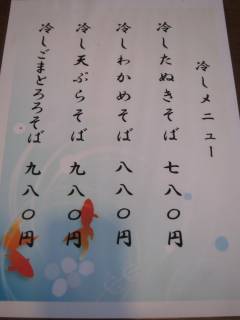 冷しメニュー
冷したぬきそば 七八〇円
冷しわかめそば 八八〇円
冷し天ぷらそば 九八〇円
冷しごまとろろそば 九八〇円